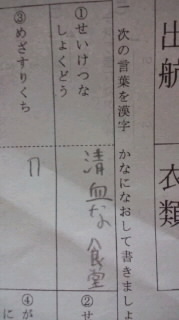 出航
衣類
一 次の言葉を漢字 かなになおして書きましょ
①せいけつな
しょくどう
清血な食堂
②せ
③めざすりくち
④が
に